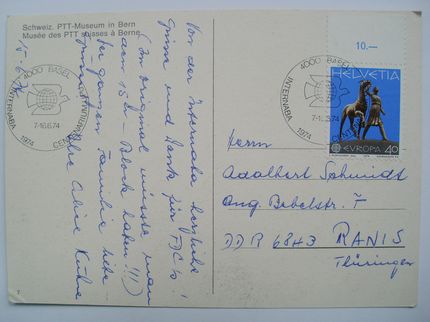 Schweiz. PTT-Museum in Bern
Musée des PTT suisses à Berne
4000 BASEL
INTERNABA 1974
CENTENARIUM UPU
7-16.6.74
10.—
HELVETIA
EUROPA 40
4000 BASEL
INTERNABA 1974
CENT
Von der Internaba herzliche
Grüsse und Dank für FDC's!
(Im Original müsste man
den 15er-Block haben!!!)
Der ganzen Familie beste
Herrn
Adalbert Schmidt
Aug. Bebelstr. 7
DDR 6843 RANIS
Thüringen
7